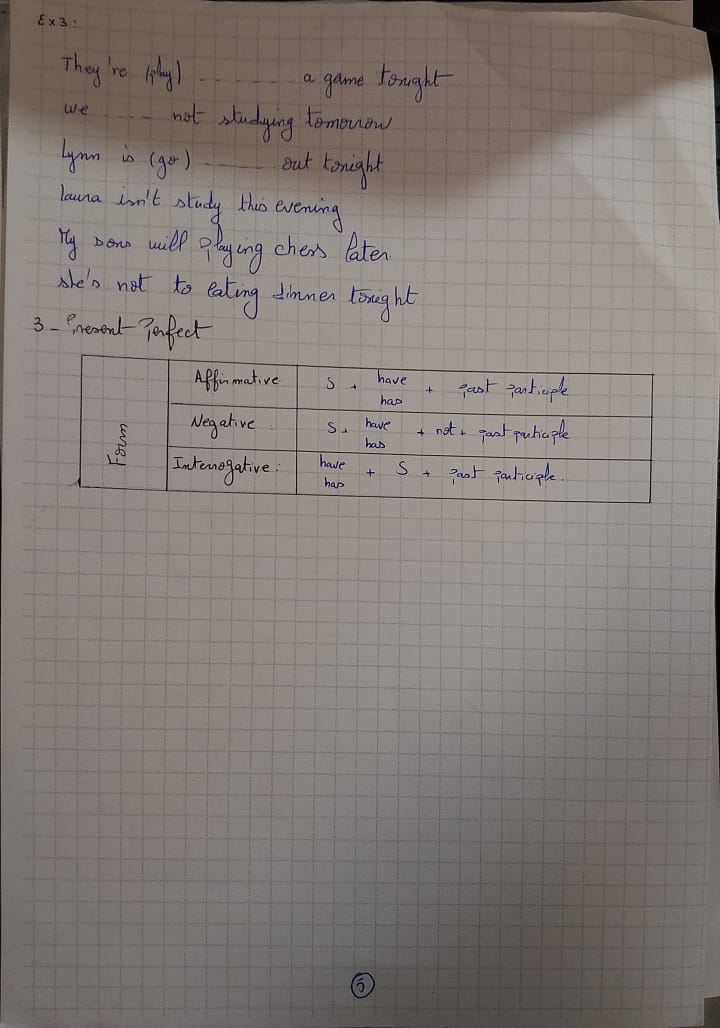 Ex3:
They're (play) ........ a game tonight
we .... not studying tomorrow
Lynn is (go) ...... out tonight
laura isn't study this evening
My sons will playing chess later.
she's not to eating dinner tonight
3 - Present Perfect
Form
Affirmative S + have has + past participle
Negative : S + have has + not + past participle
Interrogative : have has + S + past participle.
5